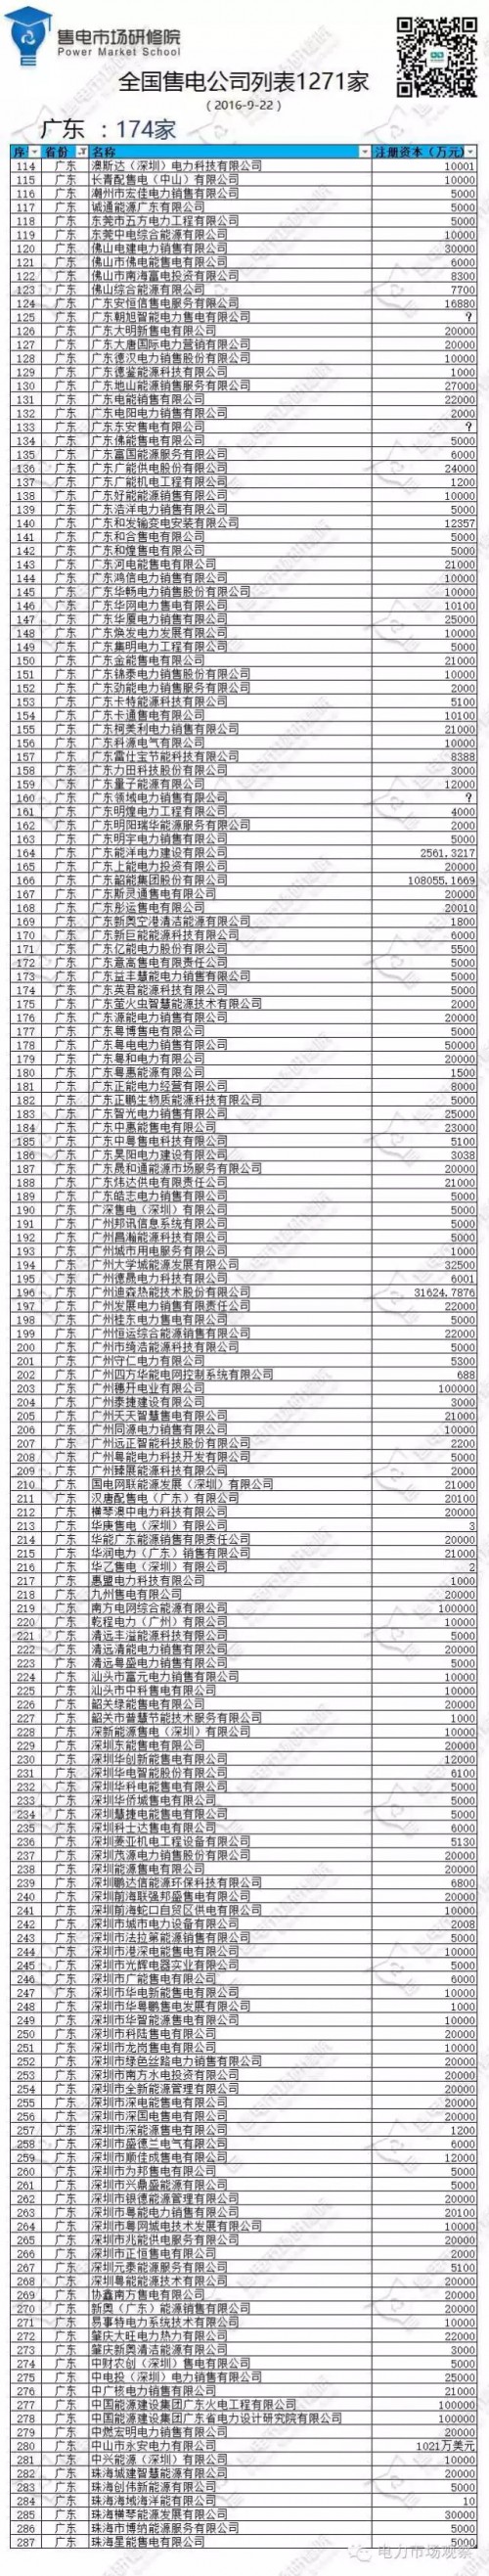 售电市场研修院
Power Market School
全国售电公司列表1271家
（2016-9-22）
广东 ：174家
序 省份 名称 注册资本（万元）
114 广东 澳斯达（深圳）电力科技有限公司 10001
115 广东 长青配售电（中山）有限公司 10000
116 广东 潮州市宏佳电力销售有限公司 5000
117 广东 诚通能源广东有限公司 5000
118 广东 东莞市五方电力工程有限公司 5000
119 广东 东莞中电综合能源有限公司 10000
120 广东 佛山电建电力销售有限公司 30000
121 广东 佛山市佛电能售电有限公司 6000
122 广东 佛山市南海富电投资有限公司 8300
123 广东 佛山综合能源有限公司 7700
124 广东 广东安恒信售电服务有限公司 16880
125 广东 广东朝旭智能电力售电有限公司 ？
126 广东 广东大明新售电有限公司 20000
127 广东 广东大唐国际电力营销有限公司 20000
128 广东 广东德汉电力销售股份有限公司 10000
129 广东 广东德鉴能源科技有限公司 1000
130 广东 广东地山能源销售服务有限公司 27000
131 广东 广东电能销售有限公司 22000
132 广东 广东电阳电力销售有限公司 2000
133 广东 广东东安售电有限公司 ？
134 广东 广东佛能售电有限公司 5000
135 广东 广东富国能源服务有限公司 6000
136 广东 广东广能供电股份有限公司 24000
137 广东 广东广能机电工程有限公司 1200
138 广东 广东好能能源销售有限公司 10000
139 广东 广东浩洋电力销售有限公司 5000
140 广东 广东和发输变电安装有限公司 12357
141 广东 广东和合售电有限公司 5000
142 广东 广东和煌售电有限公司 5000
143 广东 广东河电能售电有限公司 21000
144 广东 广东鸿信电力销售有限公司 10000
145 广东 广东华畅电力销售股份有限公司 10000
146 广东 广东华网电力售电有限公司 10100
147 广东 广东华厦电力销售有限公司 25000
148 广东 广东焕发电力发展有限公司 10000
149 广东 广东集明电力工程有限公司 5000
150 广东 广东金能售电有限公司 21000
151 广东 广东锦泰电力销售股份有限公司 10000
152 广东 广东劲能电力销售服务有限公司 2000
153 广东 广东卡特能源科技有限公司 5100
154 广东 广东卡通售电有限公司 10100
155 广东 广东柯美利电力销售有限公司 21000
156 广东 广东科源电气有限公司 10000
157 广东 广东雷仕宝节能科技有限公司 8388
158 广东 广东力田科技股份有限公司 3000
159 广东 广东量子能源有限公司 12000
160 广东 广东领域电力销售有限公司 ？
161 广东 广东明煌电力工程有限公司 4000
162 广东 广东明阳瑞华能源服务有限公司 2000
163 广东 广东明宇电力销售有限公司 5000
164 广东 广东能洋电力建设有限公司 2561.3217
165 广东 广东上能电力投资有限公司 20000
166 广东 广东韶能集团股份有限公司 108055.1669
167 广东 广东斯灵通售电有限公司 20000
168 广东 广东彤运售电有限公司 20010
169 广东 广东新奥空港清洁能源有限公司 1800
170 广东 广东新巨能能源科技有限公司 6000
171 广东 广东亿能电力股份有限公司 5500
172 广东 广东意高售电有限责任公司 5000
173 广东 广东益丰慧能电力销售有限公司 5000
174 广东 广东英君能源科技有限公司 5000
175 广东 广东萤火虫智慧能源技术有限公司 2000
176 广东 广东源能电力销售有限公司 20000
177 广东 广东粤博售电有限公司 5000
178 广东 广东粤电电力销售有限公司 50000
179 广东 广东粤和电力有限公司 20000
180 广东 广东粤惠能源有限公司 1500
181 广东 广东正能电力经营有限公司 8000
182 广东 广东正鹏生物质能源科技有限公司 5000
183 广东 广东智光电力销售有限公司 25000
184 广东 广东中惠能售电有限公司 23000
185 广东 广东中粤售电科技有限公司 5100
186 广东 广东昊阳电力建设有限公司 3038
187 广东 广东晟和通能源市场服务有限公司 20000
188 广东 广东炜达供电有限责任公司 21000
189 广东 广东皓志电力销售有限公司 5000
190 广东 广深售电（深圳）有限公司 5000
191 广东 广州邦讯信息系统有限公司 5000
192 广东 广州昌瀚能源科技有限公司 5000
193 广东 广州城市用电服务有限公司 1000
194 广东 广州大学城能源发展有限公司 32500
195 广东 广州德晟电力科技有限公司 6001
196 广东 广州迪森热能技术股份有限公司 31624.7876
197 广东 广州发展电力销售有限责任公司 22000
198 广东 广州桂东电力售电有限公司 5000
199 广东 广州恒运综合能源销售有限公司 22000
200 广东 广州市绮浩能源科技有限公司 5000
201 广东 广州守仁电力有限公司 5300
202 广东 广州四方华能电网控制系统有限公司 688
203 广东 广州穗开电业有限公司 100000
204 广东 广州泰捷建设有限公司 3000
205 广东 广州天天智慧售电有限公司 21000
206 广东 广州同源电力销售有限公司 10000
207 广东 广州远正智能科技股份有限公司 2200
208 广东 广州粤能电力科技开发有限公司 5000
209 广东 广州臻展能源科技有限公司 2000
210 广东 国电网联能源发展（深圳）有限公司 21000
211 广东 汉唐配售电（广东）有限公司 20100
212 广东 横琴澳中电力科技有限公司 20000
213 广东 华庚售电（深圳）有限公司 3
214 广东 华能广东能源销售有限责任公司 20000
215 广东 华润电力（广东）销售有限公司 21000
216 广东 华乙售电（深圳）有限公司 2
217 广东 惠盟电力科技有限公司 1000
218 广东 九州售电有限公司 20000
219 广东 南方电网综合能源有限公司 100000
220 广东 乾程电力（广州）有限公司 10000
221 广东 清远丰溢能源科技有限公司 5000
222 广东 清远清能电力销售有限公司 20000
223 广东 清远粤盛电力销售有限公司 5000
224 广东 汕头市富元电力销售有限公司 10000
225 广东 汕头市中科售电有限公司 10000
226 广东 韶关绿能售电有限公司 20000
227 广东 韶关市普慧节能技术服务有限公司 1000
228 广东 深新能源售电（深圳）有限公司 10000
229 广东 深圳东能售电有限公司 20000
230 广东 深圳华创新能售电有限公司 12000
231 广东 深圳华电智能股份有限公司 6100
232 广东 深圳华科电能售电有限公司 5000
233 广东 深圳华侨城售电有限公司 5000
234 广东 深圳慧捷电能售电有限公司 5000
235 广东 深圳科士达售电有限公司 6000
236 广东 深圳菱亚机电工程设备有限公司 5130
237 广东 深圳茂源电力销售股份有限公司 20000
238 广东 深圳能源售电有限公司 20000
239 广东 深圳鹏达信能源环保科技有限公司 6800
240 广东 深圳前海联强邦盛售电有限公司 20000
241 广东 深圳前海蛇口自贸区供电有限公司 10000
242 广东 深圳市城市电力设备有限公司 2008
243 广东 深圳市法拉第能源销售有限公司 5000
244 广东 深圳市港深电能售电有限公司 10000
245 广东 深圳市光辉电器实业有限公司 5000
246 广东 深圳市广能售电有限公司 6000
247 广东 深圳市华电新能售电有限公司 10000
248 广东 深圳市华粤鹏售电发展有限公司 1000
249 广东 深圳市华智能源售电有限公司 10000
250 广东 深圳市科陆售电有限公司 20000
251 广东 深圳市龙岗售电有限公司 10000
252 广东 深圳市绿色丝路电力销售有限公司 20000
253 广东 深圳市南方水电投资有限公司 20000
254 广东 深圳市全新能源管理有限公司 20000
255 广东 深圳市深电能售电有限公司 20000
256 广东 深圳市深国电售电有限公司 20000
257 广东 深圳市深能源售电有限公司 1200
258 广东 深圳市盛德兰电气有限公司 6000
259 广东 深圳市顺佳成售电有限公司 12000
260 广东 深圳市为邦售电有限公司 5000
261 广东 深圳市兴鼎盛能源有限公司 5000
262 广东 深圳市银德能源管理有限公司 20000
263 广东 深圳市粤能电力销售有限公司 20100
264 广东 深圳市粤网城电技术发展有限公司 10000
265 广东 深圳市兆能供电服务有限公司 20000
266 广东 深圳市正恒售电有限公司 2000
267 广东 深圳元泰能源服务有限公司 5100
268 广东 深圳粤能能源技术有限公司 20000
269 广东 协鑫南方售电有限公司 20000
270 广东 新奥（广东）能源销售有限公司 20000
271 广东 易事特电力系统技术有限公司 10000
272 广东 肇庆大旺电力热力有限公司 22000
273 广东 肇庆新奥清洁能源有限公司 3000
274 广东 中财农创（深圳）售电有限公司 5000
275 广东 中电投（深圳）电力销售有限公司 25000
276 广东 中广核电力销售有限公司 21000
277 广东 中国能源建设集团广东火电工程有限公司 100000
278 广东 中国能源建设集团广东省电力设计研究院有限公司 100000
279 广东 中燃宏明电力销售有限公司 20000
280 广东 中山市永安电力有限公司 1021万美元
281 广东 中兴能源（深圳）有限公司 10000
282 广东 珠海城建智慧能源有限公司 20000
283 广东 珠海创伟新能源有限公司 5000
284 广东 珠海海域海洋能有限公司 10
285 广东 珠海横琴能源发展有限公司 30000
286 广东 珠海市博纳能源服务有限公司 5000
287 广东 珠海星能售电有限公司 5000
电力市场观察